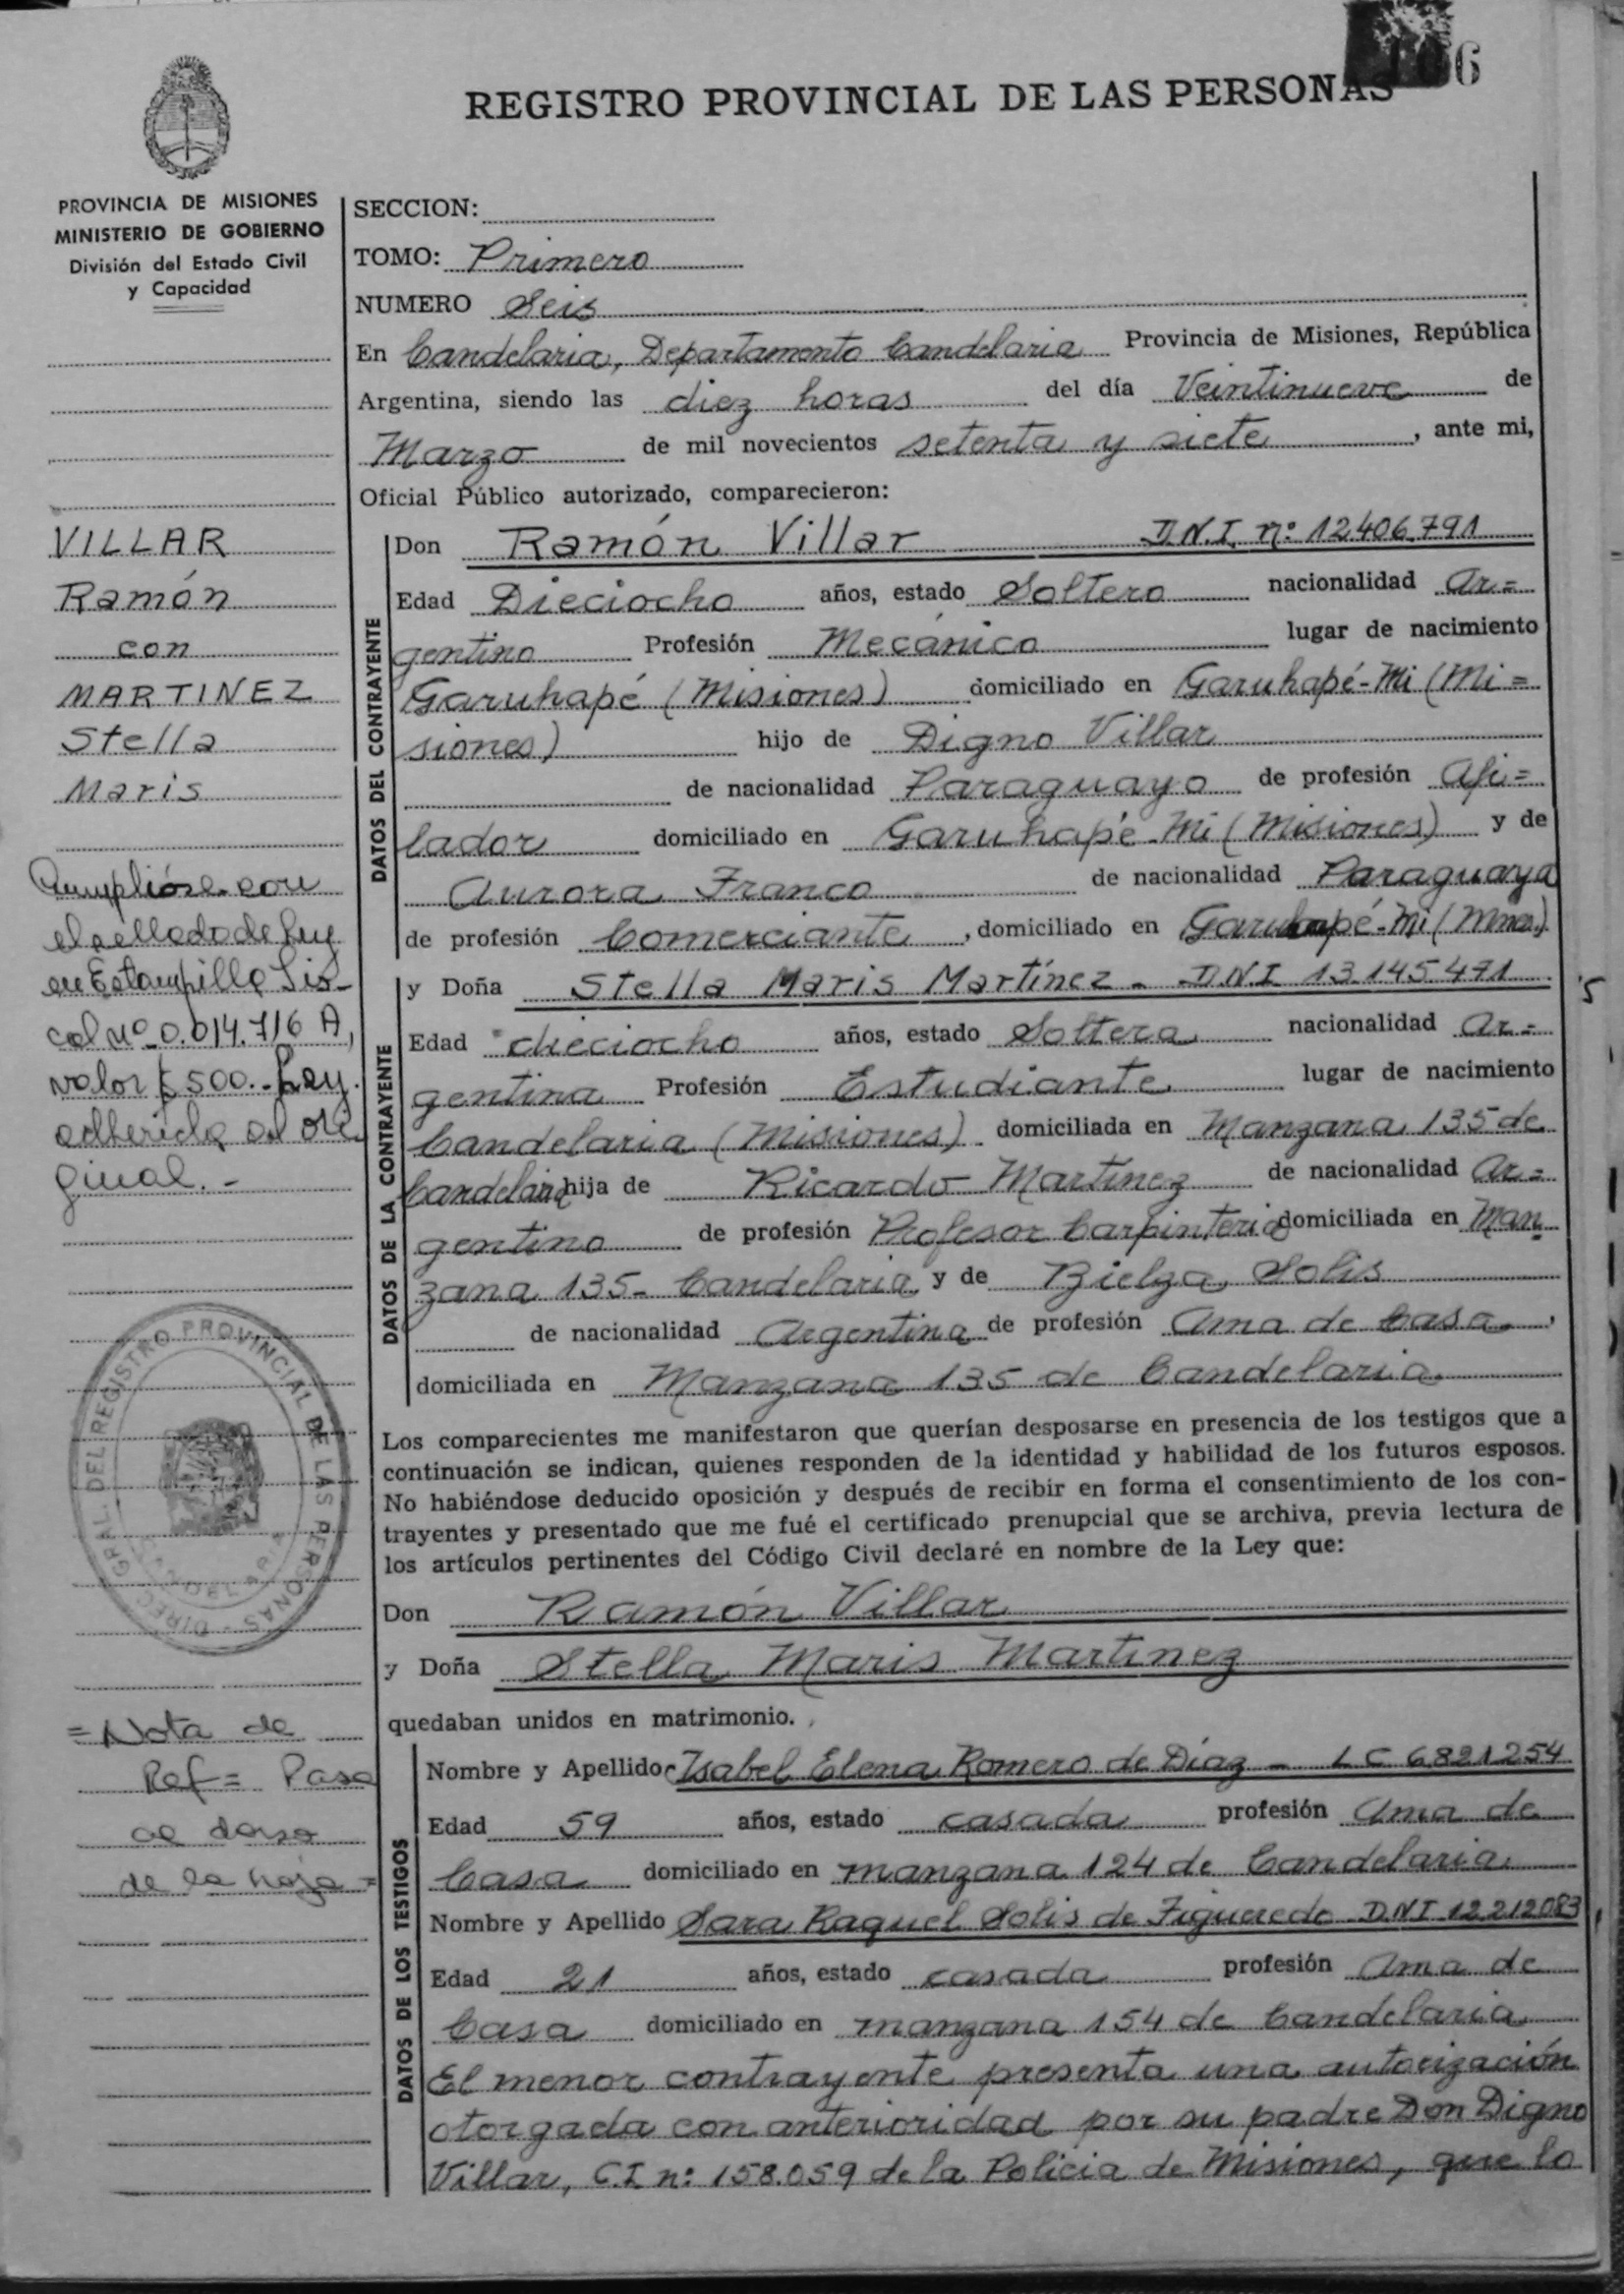 106
REGISTRO PROVINCIAL DE LAS PERSONAS
PROVINCIA DE MISIONES
MINISTERIO DE GOBIERNO
División del Estado Civil
y Capacidad
VILLAR
Ramón
con
MARTINEZ
Stella
Maris
Cumplióse con
el sellado de Ley
en Estampilla Fis-
cal nº 0.014.716 A,
valor $ 500.- Ley.
adherida al ori
ginal.-
DIREC. GRAL. DEL REGISTRO PROVINCIAL DE LAS PERSONAS
=Nota de
Ref= Pasa
al dorso
de la hoja=
SECCION:
TOMO: Primero
NUMERO Seis
En Candelaria, Departamento Candelaria Provincia de Misiones, República
Argentina, siendo las diez horas del día Veintinueve de
Marzo de mil novecientos setenta y siete, ante mi,
Oficial Público autorizado, comparecieron:
DATOS DEL CONTRAYENTE
Don Ramón Villar D.N.I. nº: 12.406.791
Edad Dieciocho años, estado Soltero nacionalidad Ar=
gentino Profesión Mecánico lugar de nacimiento
Garuhapé (Misiones) domiciliado en Garuhapé-Mi (Mi=
siones) hijo de Digno Villar
de nacionalidad Paraguayo de profesión Afi=
lador domiciliado en Garuhapé-Mi (Misiones) y de
Aurora Franco de nacionalidad Paraguaya
de profesión Comerciante, domiciliado en Garuhapé-Mi (Mnes)
DATOS DE LA CONTRAYENTE
y Doña Stella Maris Martínez - D.N.I. 13.145.471
Edad dieciocho años, estado Soltera nacionalidad Ar=
gentina Profesión Estudiante lugar de nacimiento
Candelaria (Misiones) domiciliada en Manzana 135 de
Candelaria hija de Ricardo Martínez de nacionalidad Ar=
gentino de profesión Profesor Carpintería domiciliada en Man
zana 135- Candelaria y de Bielza Solis
de nacionalidad Argentina de profesión Ama de Casa,
domiciliada en Manzana 135 de Candelaria
Los comparecientes me manifestaron que querían desposarse en presencia de los testigos que a
continuación se indican, quienes responden de la identidad y habilidad de los futuros esposos.
No habiéndose deducido oposición y después de recibir en forma el consentimiento de los con-
trayentes y presentado que me fué el certificado prenupcial que se archiva, previa lectura de
los artículos pertinentes del Código Civil declaré en nombre de la Ley que:
Don Ramón Villar
y Doña Stella Maris Martinez
quedaban unidos en matrimonio.
DATOS DE LOS TESTIGOS
Nombre y Apellido Isabel Elena Romero de Díaz - LC 6821254
Edad 59 años, estado casada profesión Ama de
Casa domiciliado en manzana 124 de Candelaria
Nombre y Apellido Sara Raquel Solis de Figueredo DNI 12.212.083
Edad 21 años, estado casada profesión Ama de
Casa domiciliado en manzana 154 de Candelaria
El menor contrayente presenta una autorización
otorgada con anterioridad por su padre Don Digno
Villar, C.I. nº: 158.059 de la Policía de Misiones, que lo